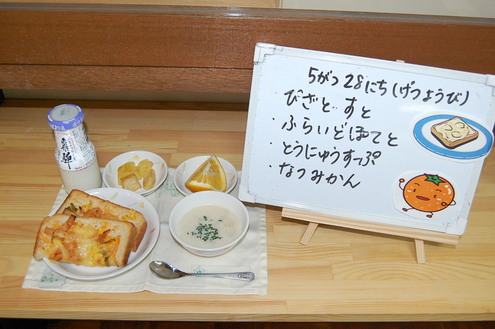 5がつ28にち(げつようび)
ぴざとーすと
・ふらいどぽてと
・とうにゅうすーぷ
・なつみかん